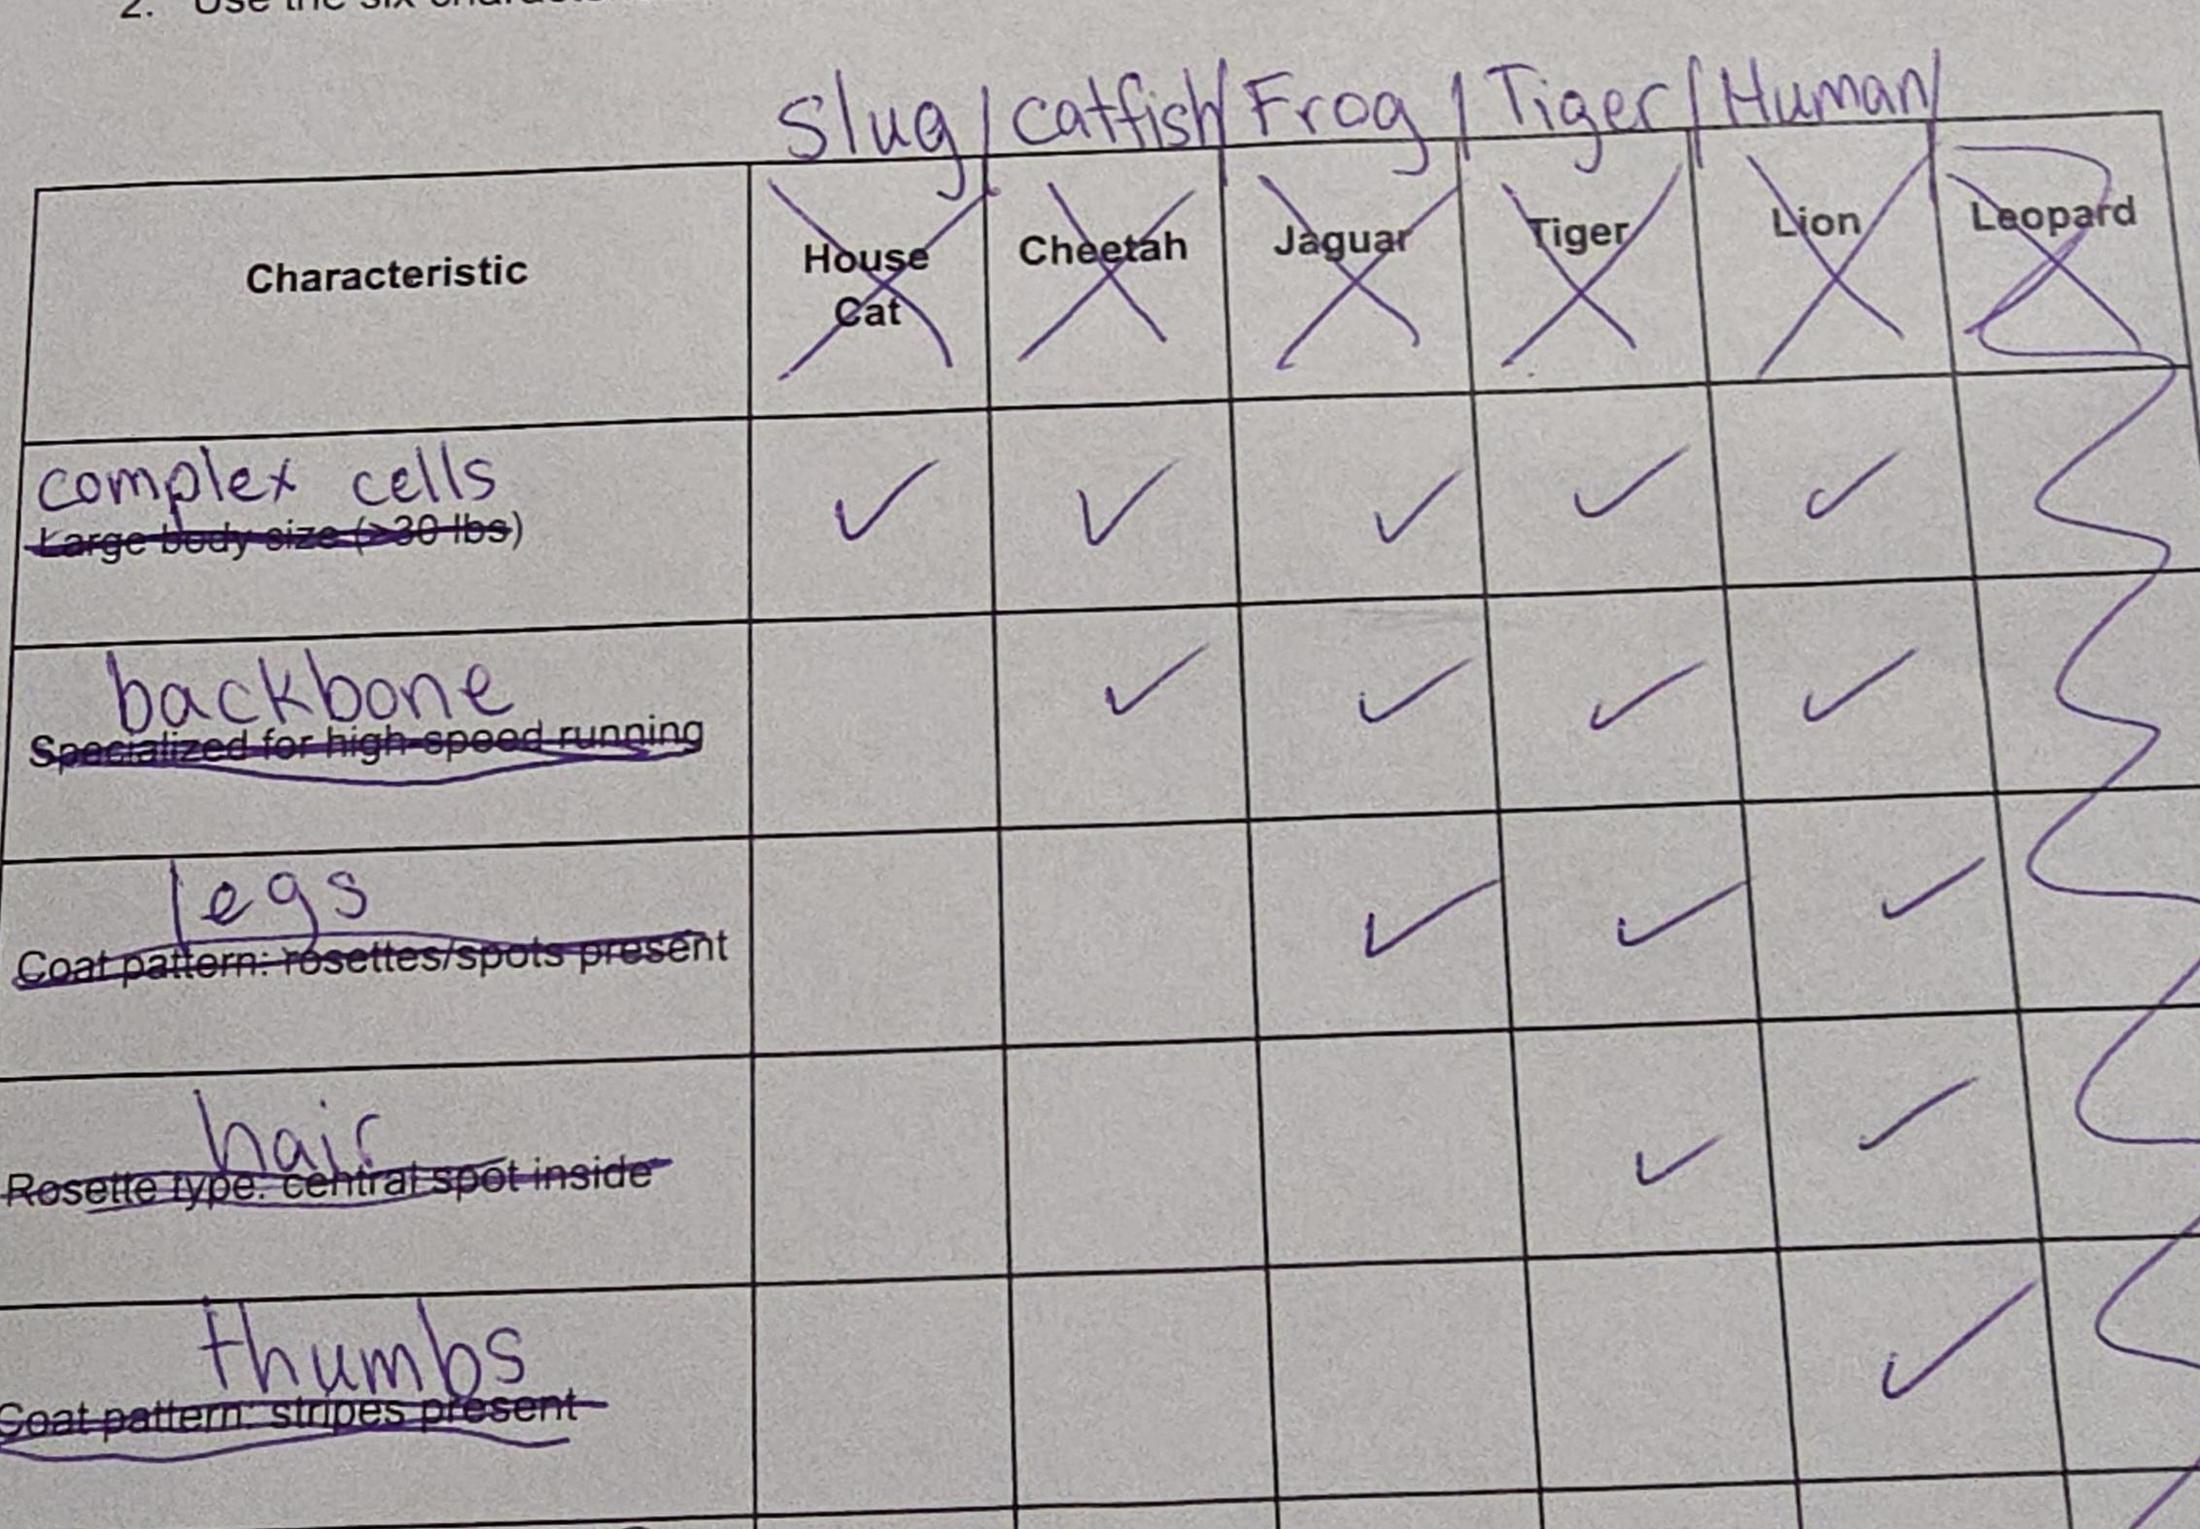 2. Use the six
Slug / Catfish / Frog / Tiger / Human /
Characteristic House Cat Cheetah Jaguar Tiger Lion Leopard
complex cells ✓ ✓ ✓ ✓ ✓
Large body size (>30 lbs)
backbone ✓ ✓ ✓ ✓
Specialized for high-speed running
legs ✓ ✓ ✓
Coat pattern: rosettes/spots present
hair ✓ ✓
Rosette type: central spot inside
thumbs ✓
Coat pattern: stripes present